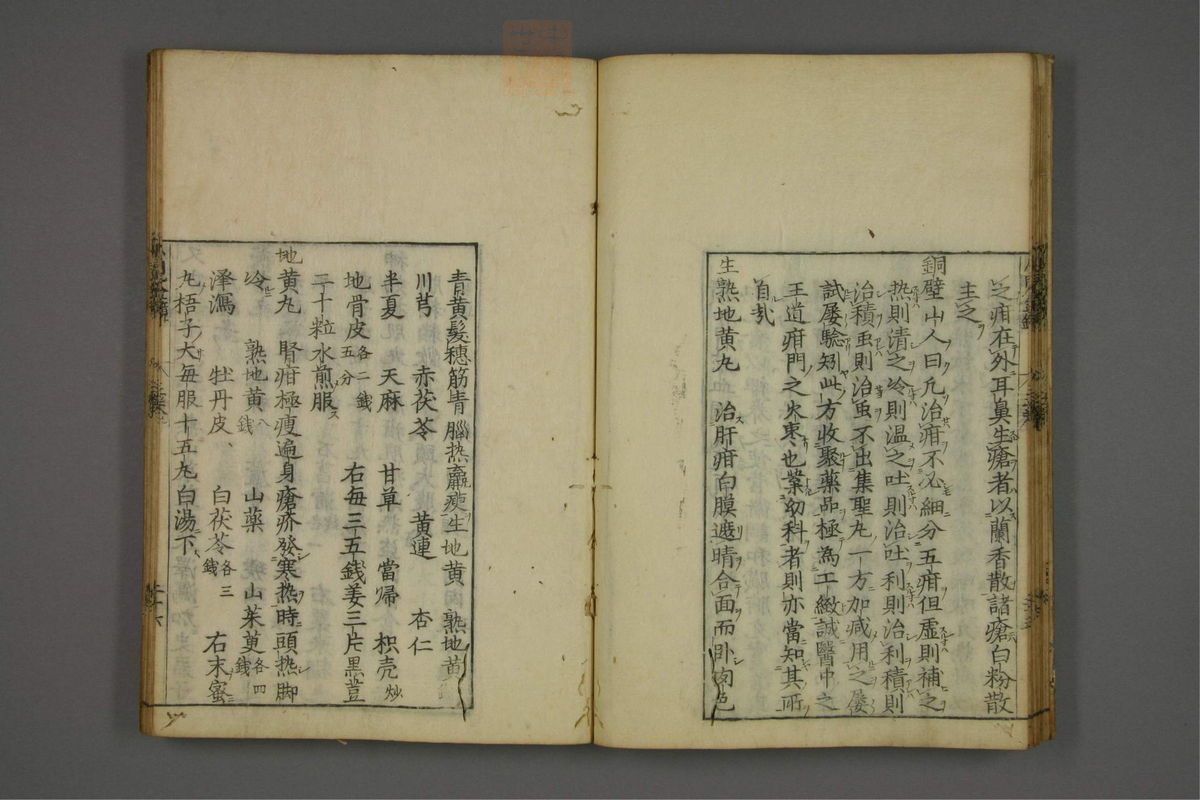 之疳在外耳鼻生瘡者以蘭香散諸瘡白粉散
主之
銅壁山人曰凢治疳不必細分五疳但虛則補之
熱則清之冷則温之吐則治吐利則治利積則
治積虫則治虫不出集聖丸一方加减用之屡
試屡驗矧此方收聚藥品極為工緻誠醫中之
王道疳門之也業幼科者則亦當知其所
自㢤
生熟地黄丸 治肝疳白膜遮睛合面而卧肉色
青黄髮穗筋青腦热羸瘦生地黄 熟地黄
川芎 赤茯苓 黄連 杏仁
半夏 天麻 甘草 當歸 枳壳炒
地骨皮各二錢五分 右每三五錢姜三片黒荳
二十粒水煎服
地黄丸 腎疳極瘦遍身瘡疥發寒热時頭热脚
冷 熟地黄八錢 山藥 山茱萸各四錢
澤瀉 牡丹皮 白茯苓各三錢 右末蜜
丸梧子大每服十五丸白湯下